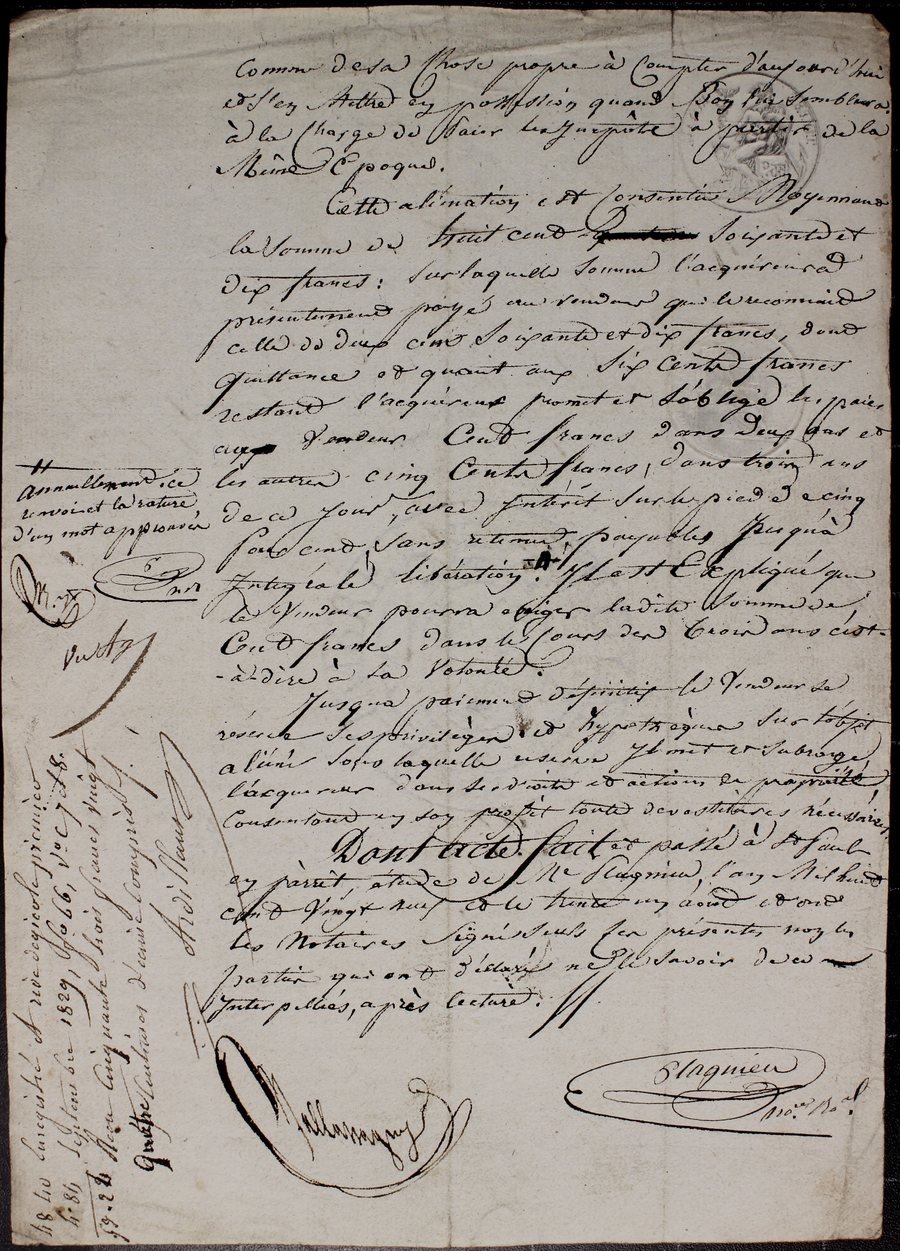 Comme de sa Chose propre à Compter d'aujourd'hui
et d'en Mettre en possession quand Bon lui Semblera
à la Charge de Paier les Impôts à partir de la
Même Epoque.
Cette alienation est Consentie Moyennant
la Somme de huit cent Soixante et
dix francs: Sur laquelle Somme l'acquéreur a
présentement payé au vendeur qui le reconnaid
celle de deux cent Soixante et dix francs, dont
quittance et quant aux Six Cents francs
restant l'acquéreur promet et S'oblige les paier
au Vendeur Cent francs dans Deux ans et
les autres cinq Cents francs, dans trois ans
de ce jour, avec Intérêt Sur le pied de cinq
pour cent, Sans retenue, payables Jusqu'à
Intégrale libération. Il est Expliqué que
le Vendeur pourra exiger ladite Somme de
Cent francs dans le Cours des trois ans c'est-
-à-dire à Sa Volonté.
Jusqu'a paiement définitif le Vendeur Se
réserve Ses privilèges et hypothèques Sur l'objet
aliéné Sous laquelle reserve Il met et Subroge
l'acquereur dans Ses droits et actions de propriété
Consentant en Son profit toute devestitures nécessaires
Dont acte. fait et passé à St Paul
en jarret, étude de Me Plagnieu, l'an Mil huit
cent Vingt neuf et le trente un août et ont
les Notaires Signé Seuls Ces présentes non les
parties qui ont déclaré ne le Savoir de ce
Interpellées, après lecture.
Plagnieu
nore Roal
annuellement. ce
renvoi et la rature
d'un mot approuvés
Enregistré à rive de gier le premier
Septembre 1829, fo 66, Vo C 7 & 8.
Reçu Cinquante trois francs vingt
quatre Centimes dixième Compris
48. 40
4. 84
53. 24